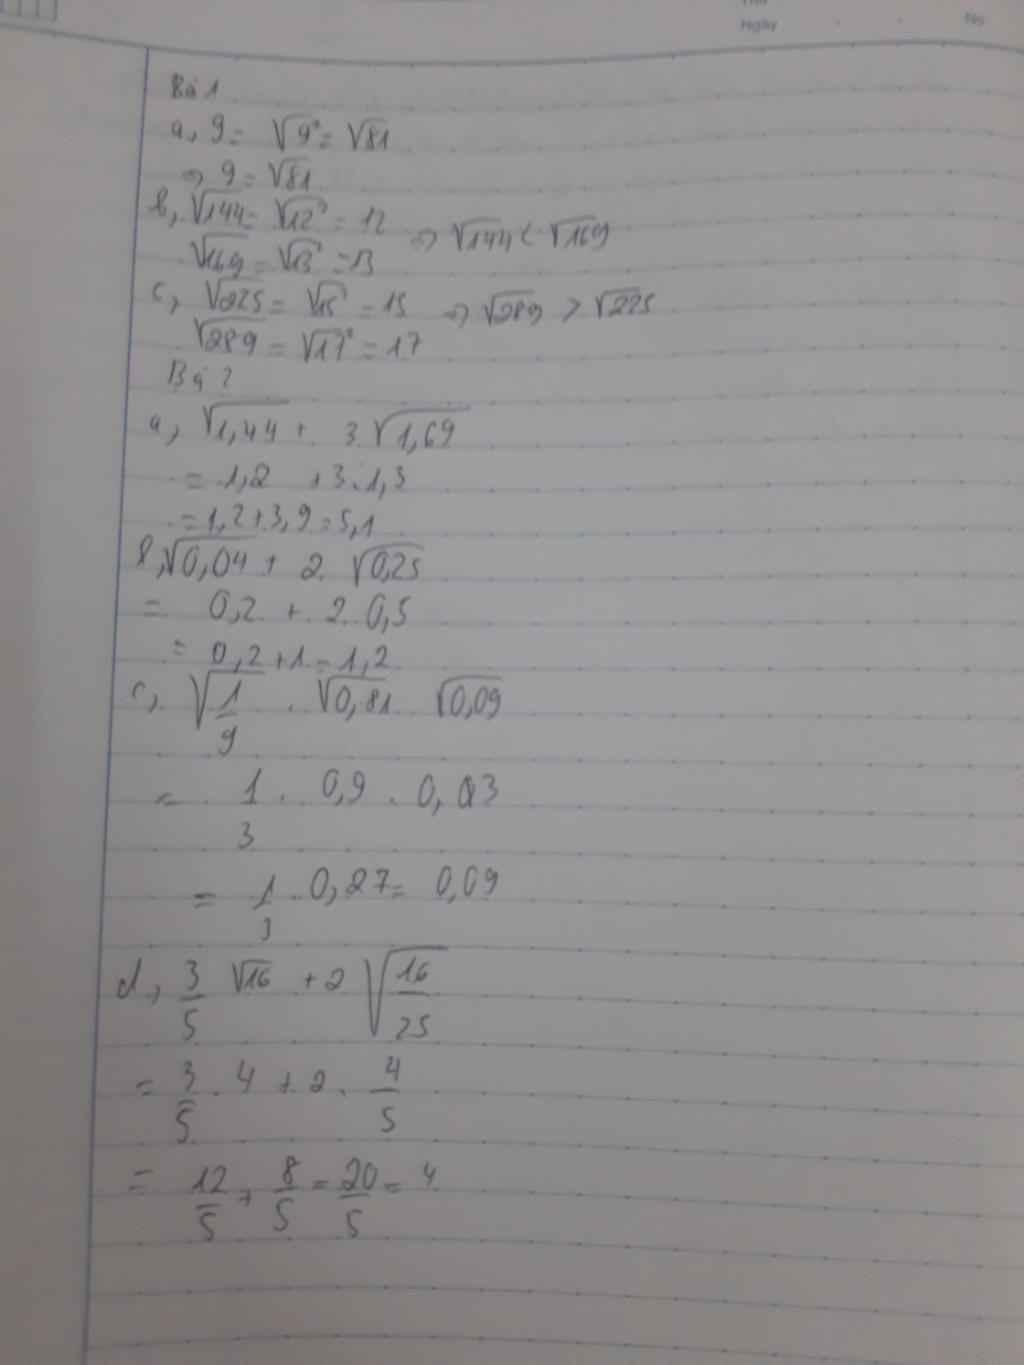 Ngày
No
Bà 1
a, 9 = √9² = √81
=> 9 = √81
b, √144 = √12² = 12 => √144 < √169
√169 = √13² = 13
c, √225 = √15² = 15 => √289 > √225
√289 = √17² = 17
Bà 2
a, √1,44 + 3 √1,69
= 1,2 + 3.1,3
= 1,2 + 3,9 = 5,1
b, √0,04 + 2. √0,25
= 0,2 + 2. 0,5
= 0,2 + 1 = 1,2
c, √1/9 . √0,81 . √0,09
= 1/3 . 0,9 . 0,03
= 1/3 . 0,27 = 0,09
d, 3/5 √16 + 2 √16/25
= 3/5 . 4 + 2 . 4/5
= 12/5 + 8/5 = 20/5 = 4